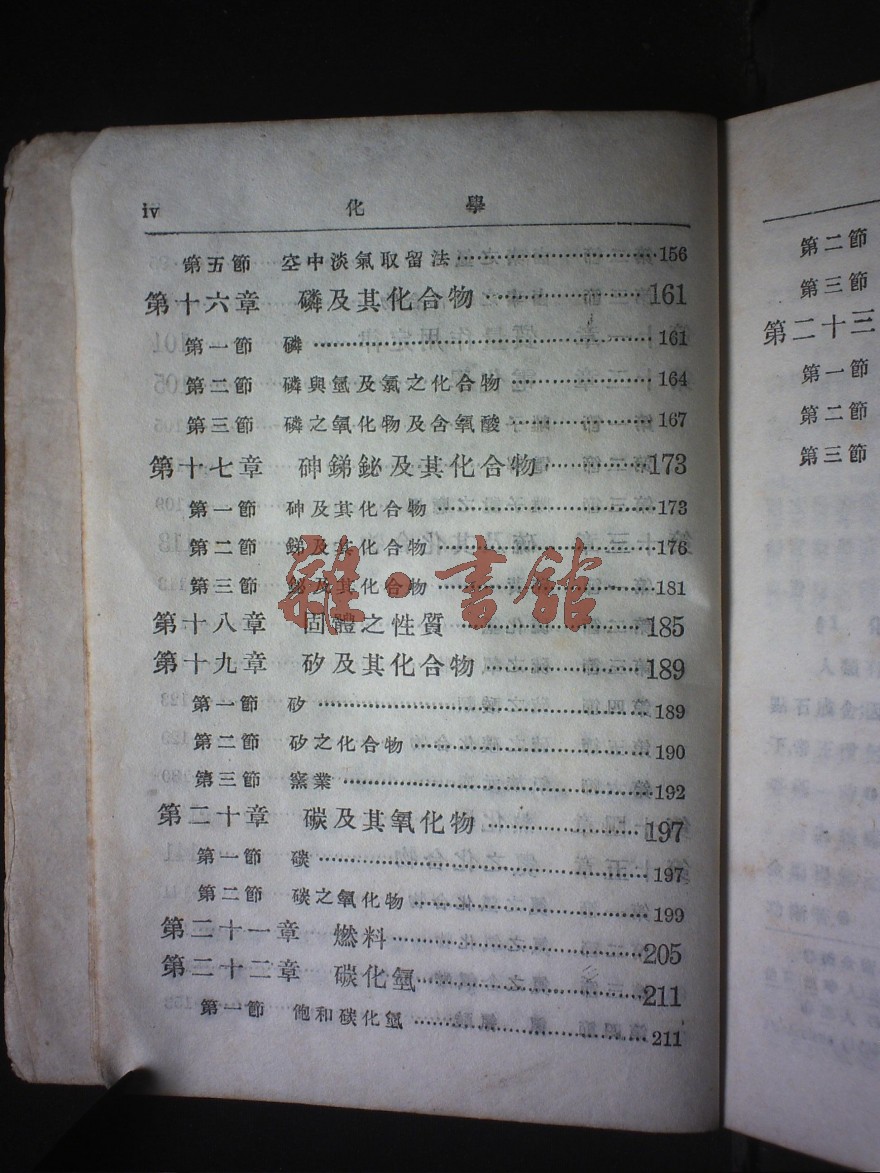 iv 化學
第五節 空中淡氣取留法 156
第十六章 磷及其化合物 161
第一節 磷 161
第二節 磷與氫及氯之化合物 164
第三節 磷之氧化物及含氧酸 167
第十七章 砷銻鉍及其化合物 173
第一節 砷及其化合物 173
第二節 銻及其化合物 176
第三節 鉍及其化合物 181
第十八章 固體之性質 185
第十九章 矽及其化合物 189
第一節 矽 189
第二節 矽之化合物 190
第三節 窯業 192
第二十章 碳及其氧化物 197
第一節 碳 197
第二節 碳之氧化物 199
第二十一章 燃料 205
第二十二章 碳化氫 211
第一節 飽和碳化氫 211
雜·書館
第二節
第三節
第二十三
第一節
第二節
第三節